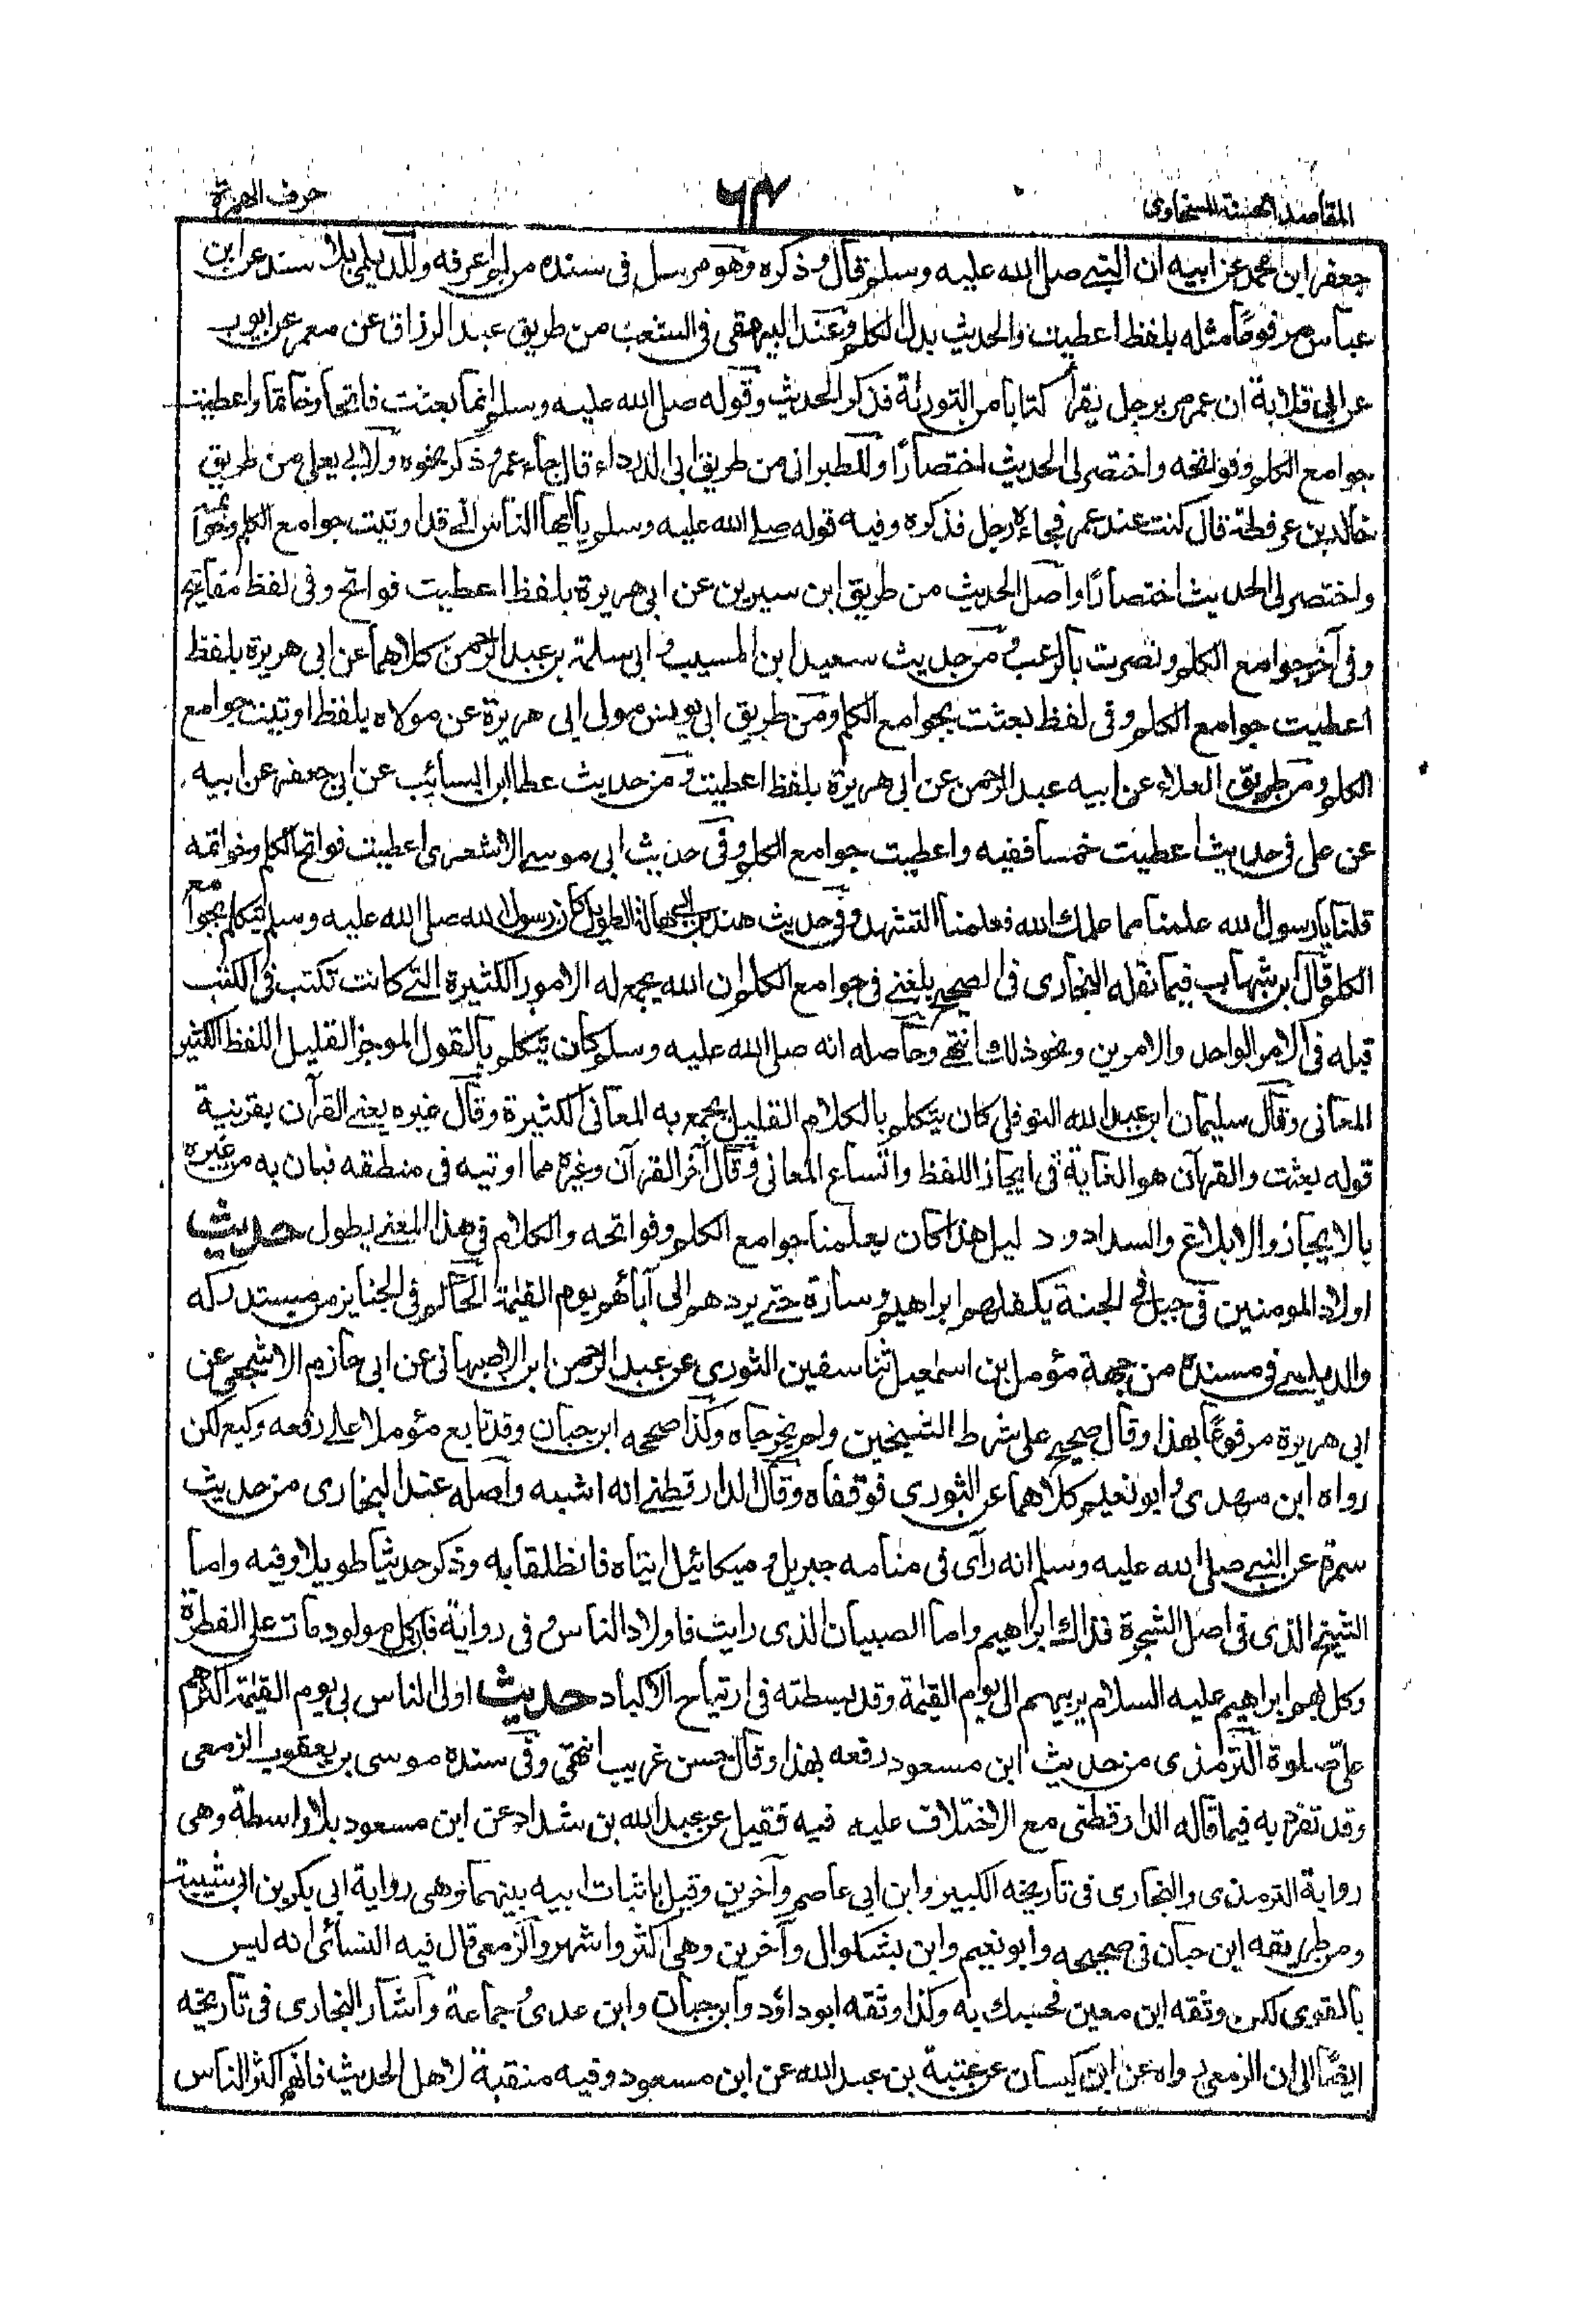 المقاصد الحسنة للسخاوى
٦٣
حرف الهمزة
جعفر ابن محمد عن ابيه ان النبى صلى الله عليه وسلم قال وذكره وهو مرسل فى سنده من لم اعرفه وللديلمى بلا سند عن ابن
عباس مرفوعًا مثله بلفظ اعطيت والحديث بدل الكلم وعند البيهقى فى الشعب من طريق عبد الرزاق عن معمر عن ايوب
عن ابى قلابة ان عمر مر برجل يقرأ كتابا من التورىة فذكر الحديث وقوله صلى الله عليه وسلم انما بعثت فاتحا وخاتما واعطيت
جوامع الكلم وفواتحه واختصر لى الحديث اختصارًا وللطبرانى من طريق ابى الدرداء قال جاء عمر وذكر نحوه ولابى يعلى من طريق
خالد بن عرفطة قال كنت عند عمر فجاءه رجل فذكره وفيه قوله صلى الله عليه وسلم يا ايها الناس انى قد اوتيت جوامع الكلم وخواتمه
واختصر لى الحديث اختصارًا واصل الحديث من طريق ابن سيرين عن ابى هريرة بلفظ اعطيت فواتح وفى لفظ مفاتيح
وفى آخر جوامع الكلم ونصرت بالرعب ومن حديث سعيد ابن المسيب وابى سلمة بن عبد الرحمن كلاهما عن ابى هريرة بلفظ
اعطيت جوامع الكلم وفى لفظ بعثت بجوامع الكلم ومن طريق ابى يونس مولى ابى هريرة عن مولاه بلفظ اوتيت جوامع
الكلم ومن طريق العلاء عن ابيه عبد الرحمن عن ابى هريرة بلفظ اعطيت ومن حديث عطا ابن السائب عن ابى جعفر عن ابيه
عن على فى حديث اعطيت خمسا ففيه واعطيت جوامع الكلم وفى حديث ابى موسى الاشعرى اعطيت فواتح الكلم وخواتمه
قلنا يا رسول الله علمنا مما علمك الله فعلمنا التشهد وفى حديث هند بن ابى هالة الطويل كان رسول الله صلى الله عليه وسلم يتكلم بجوامع
الكلم قال ابن شهاب فيما نقله البخارى فى الصحيح بلغنى فى جوامع الكلم ان الله يجمع له الامور الكثيرة التى كانت تكتب فى الكتب
قبله فى الامر الواحد والامرين ونحو ذلك انتهى وحاصله انه صلى الله عليه وسلم كان يتكلم بالقول الموجز القليل اللفظ الكثير
المعانى وقال سليمان ابن عبد الله النوفلى كان يتكلم بالكلام القليل يجمع به المعانى الكثيرة وقال غيره يعنى القرآن بقرينة
قوله بعثت والقرآن هو الغاية فى ايجاز اللفظ واتساع المعانى وقال آخر القرآن وغيره مما اوتيه فى منطقه فبان به من غيره
بالايجاز والابلاغ والسداد و دليل هذا كان يعلمنا جوامع الكلم وفواتحه والكلام فى هذا المعنى يطول حديث
اولاد المومنين فى جبل فى الجنة يكفلهم ابراهيم وسارة حتى يردهم الى آبائهم يوم القيمة الحاكم فى الجنايز من مستدركه
والديلمى فى مسنده من جهة مؤمل بن اسمعيل ثنا سفين الثورى عن عبد الرحمن ابن الاصبهانى عن ابى حازم الاشجعى عن
ابى هريرة مرفوعًا بهذا وقال صحيح على شرط الشيخين ولم يخرجاه وكذا صححه ابن حبان وقد تابع مؤملا على رفعه وكيع لكن
رواه ابن مهدى وابو نعيم كلاهما عن الثورى فوقفاه وقال الدارقطنى انه اشبه واصله عند البخارى من حديث
سمرة عن النبى صلى الله عليه وسلم انه رآى فى منامه جبريل وميكائيل اتياه فانطلقا به وذكر حديثا طويلا وفيه واما
الشيخ الذى فى اصل الشجرة فذاك ابراهيم واما الصبيان الذى رايت فاولاد الناس وفى رواية فكل مولود مات على الفطرة
وكل بهم ابراهيم عليه السلام يربيهم الى يوم القيمة وقد بسطته فى ارتياح الاكباد حديث اولى الناس بى يوم القيمة اكثرهم
على صلوة الترمذى من حديث ابن مسعود رفعه بهذا وقال حسن غريب انتهى وفى سنده موسى بن يعقوب الزمعى
وقد تفرد به فيما قاله الدارقطنى مع الاختلاف عليه فيه فقيل عن عبد الله بن شداد عن ابن مسعود بلا واسطة وهى
رواية الترمذى والبخارى فى تاريخه الكبير وابن ابى عاصم وآخرين وقيل باثبات ابيه بينهما وهى رواية ابى بكر بن ابى شيبة
ومن طريقه ابن حبان فى صحيحه وابو نعيم وابن بشكوال وآخرين وهى اكثر واشهر والزمعى قال فيه النسائى انه ليس
بالقوى لكن وثقه ابن معين فحسبك به وكذا وثقه ابو داؤد وابن حبان وابن عدى وجماعة واشار البخارى فى تاريخه
ايضًا الى ان الزمعى رواه عن ابن كيسان عن عتبة بن عبد الله عن ابن مسعود وفيه منقبة لاهل الحديث فانهم اكثر الناس